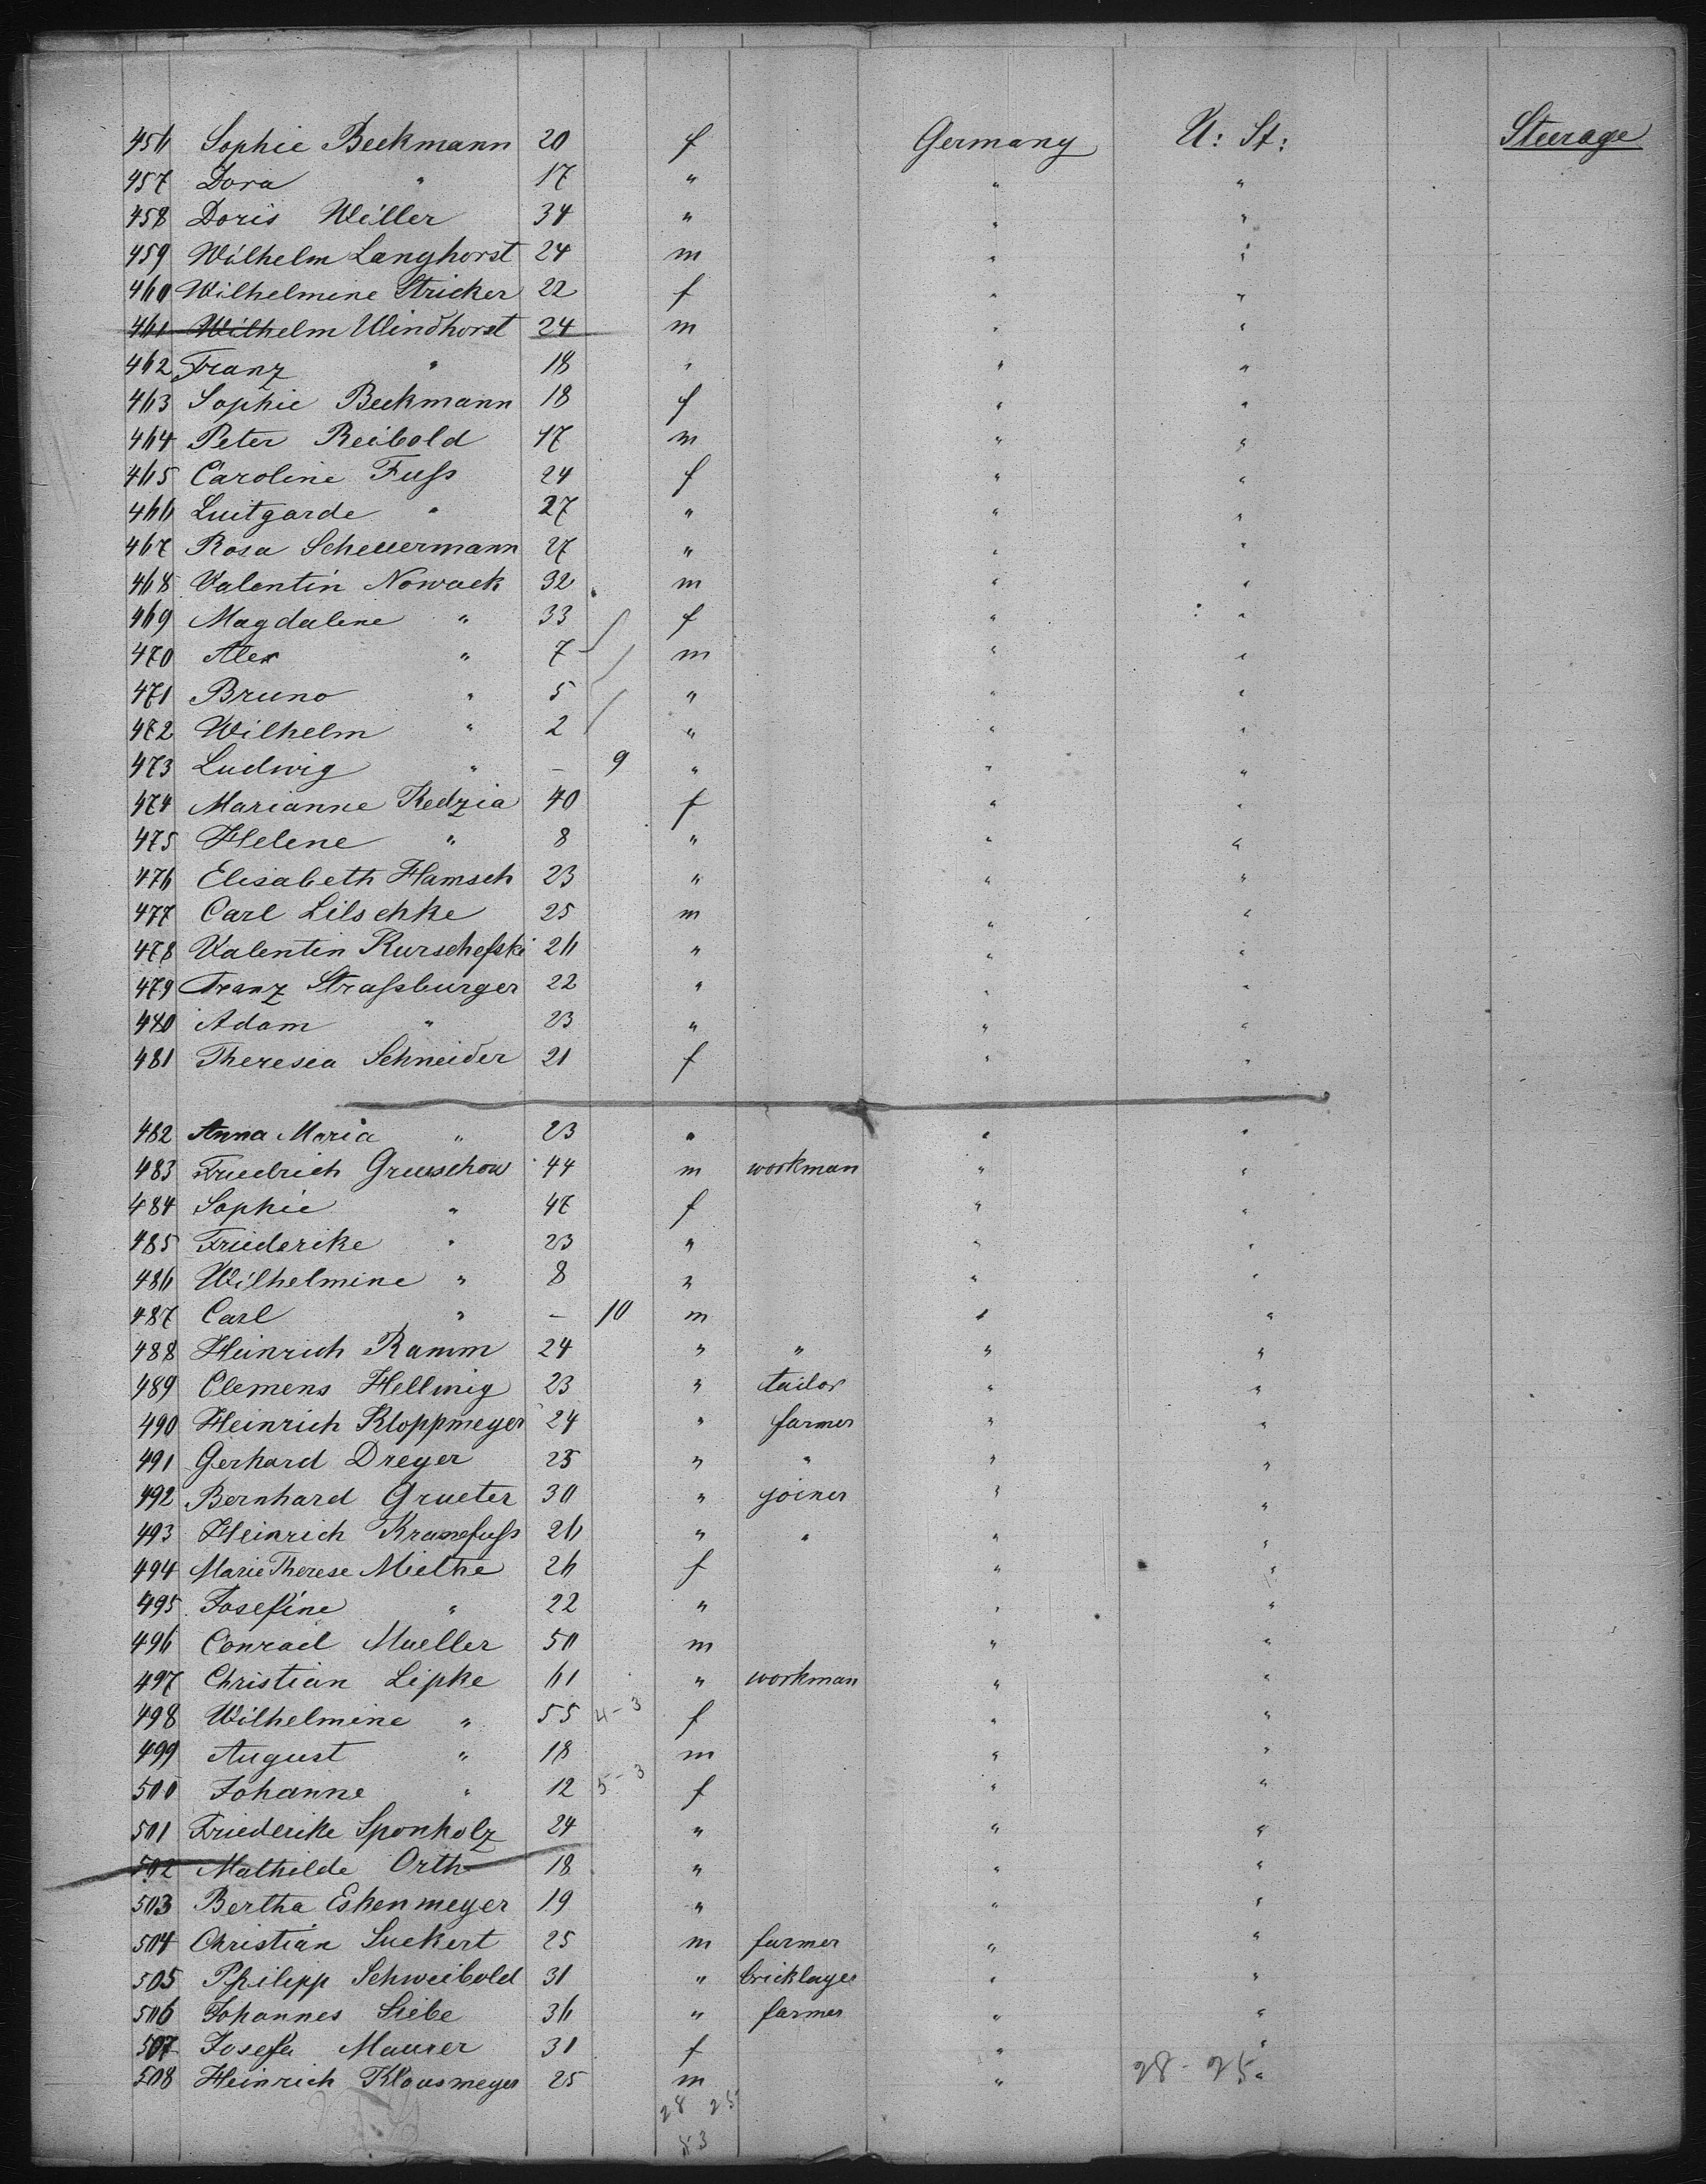 456 Sophie Beckmann 20 f Germany U: St: Steerage
457 Dora " 17 " " "
458 Doris Willer 34 " " "
459 Wilhelm Langhorst 24 m " "
460 Wilhelmine Stricker 22 f " "
461 Wilhelm Windhorst 24 m " "
462 Franz " 18 " " "
463 Sophie Beckmann 18 f " "
464 Peter Reibold 17 m " "
465 Caroline Fuſs 24 f " "
466 Luitgarde " 27 " " "
467 Rosa Scheuermann 27 " " "
468 Valentin Nowack 32 m " "
469 Magdalene " 33 f " "
470 Alex " 7 m " "
471 Bruno " 5 " " "
472 Wilhelm " 2 " " "
473 Ludwig " - 9 " " "
474 Marianne Kedzia 40 f " "
475 Helene " 8 " " "
476 Elisabeth Hamsch 23 " " "
477 Carl Lilschke 25 m " "
478 Valentin Kurschefski 26 " " "
479 Franz Straſsburger 22 " " "
480 Adam " 23 " " "
481 Theresia Schneider 21 f " "
482 Anna Maria " 23 " " "
483 Friedrich Gruschow 44 m workman " "
484 Sophie " 47 f " "
485 Friederike " 23 " " "
486 Wilhelmine " 8 " " "
487 Carl " - 10 m " "
488 Heinrich Ramm 24 " " " "
489 Clemens Hellwig 23 " tailor " "
490 Heinrich Kloppmeyer 24 " farmer " "
491 Gerhard Dreyer 25 " " " "
492 Bernhard Grueter 30 " joiner " "
493 Heinrich Kranefuſs 26 " " " "
494 Marie Therese Miethe 26 f " "
495 Josefine " 22 " " "
496 Conrad Mueller 50 m " "
497 Christian Lipke 61 " workman " "
498 Wilhelmine " 55 4-3 f " "
499 August " 18 m " "
500 Johanne " 12 5-3 f " "
501 Friederike Sponholz 24 " " "
502 Mathilde Orth 18 " " "
503 Bertha Eskenmeyer 19 " " "
504 Christian Suckert 25 m farmer " "
505 Philipp Schweibold 31 " bricklayer " "
506 Johannes Siebe 36 " farmer " "
507 Josefa Maurer 31 f " "
508 Heinrich Klausmeyer 25 m " "
28 - 25
28 25
53